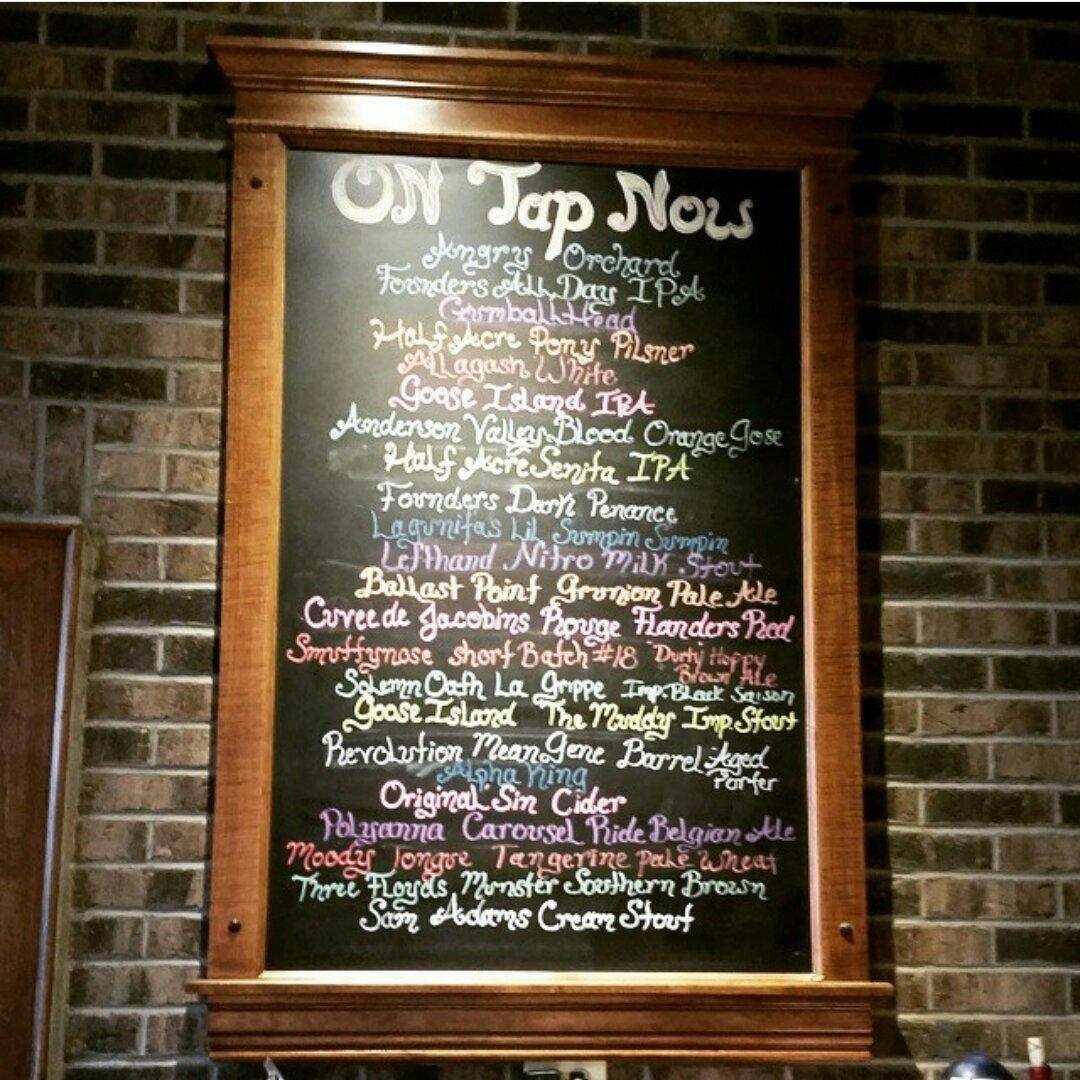 ON Tap Now
Angry Orchard
Founders All Day IPA
Gumball Head
Half Acre Pony Pilsner
Allagash White
Goose Island IPA
Anderson Valley Blood Orange Gose
Half Acre Senita IPA
Founders Dark Penance
Lagunitas Lil Sumpin Sumpin
Lefthand Nitro Milk Stout
Ballast Point Grunion Pale Ale
Cuvee de Jacobins Rouge Flanders Red
Smuttynose Short Batch #18 Durty Hoppy
Brown Ale
Solemn Oath La Grippe Imp. Black Saison
Goose Island The Muddy Imp. Stout
Revolution Mean Gene Barrel-Aged
Porter
Alpha King
Original Sin Cider
Polyanna Carousel Ride Belgian Ale
Moody Tongue Tangerine Pale Wheat
Three Floyds Munster Southern Brown
Sam Adams Cream Stout